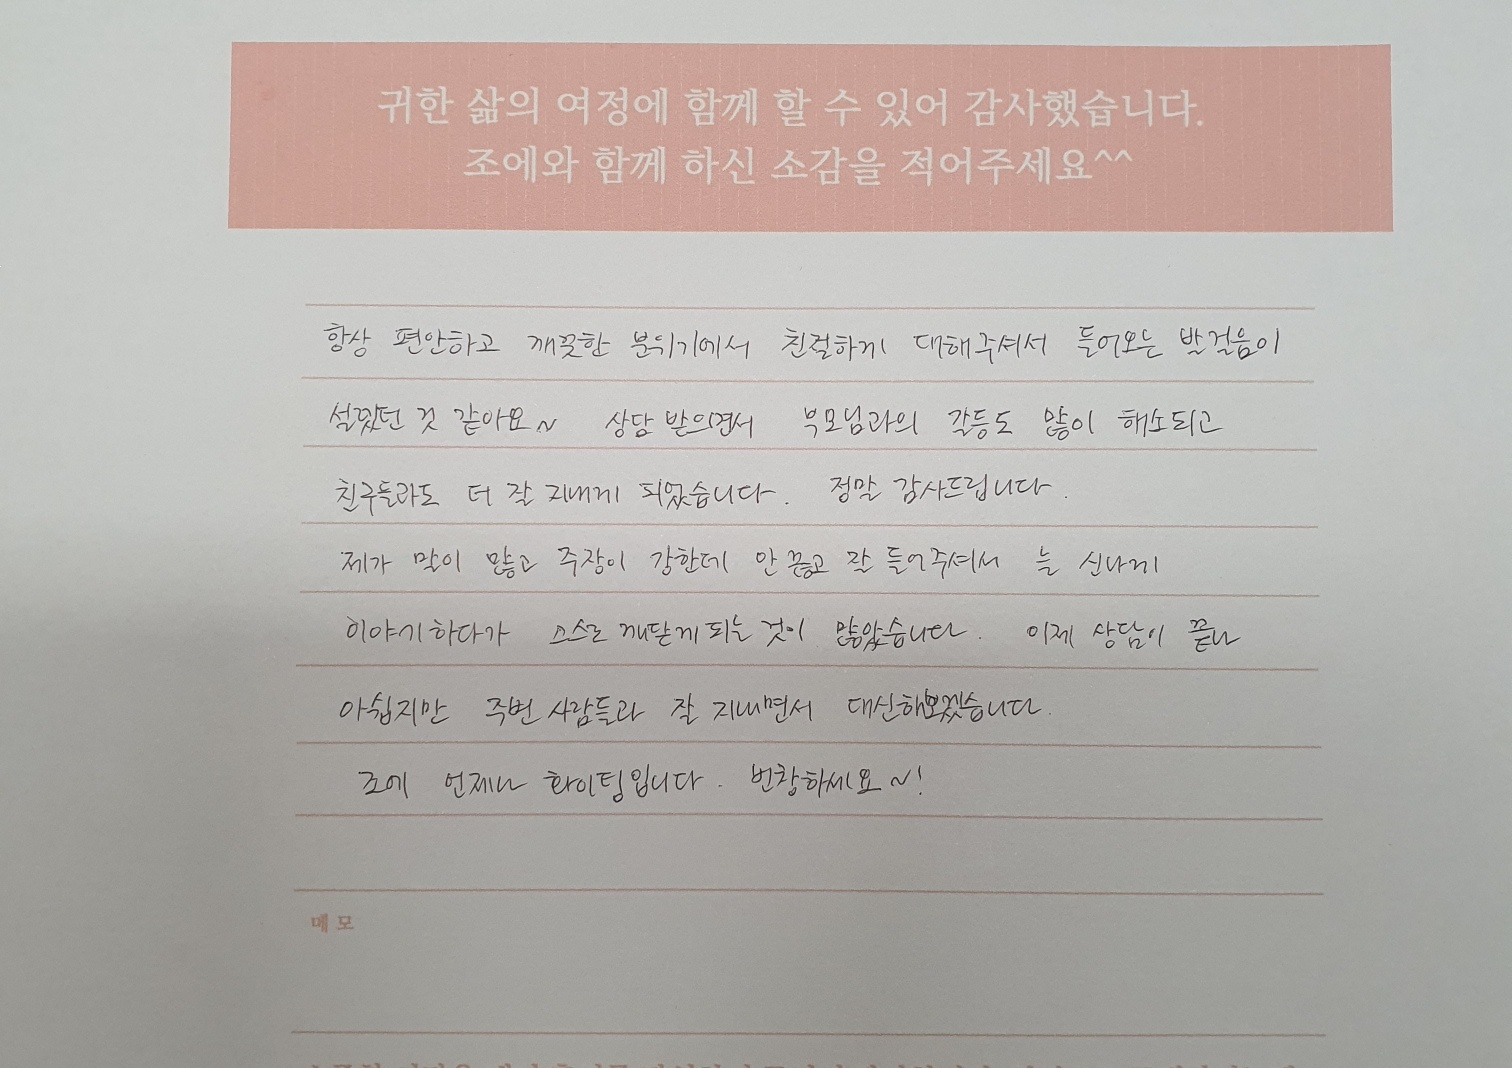 귀한 삶의 여정에 함께 할 수 있어 감사했습니다.
조에와 함께 하신 소감을 적어주세요^^
항상 편안하고 깨끗한 분위기에서 친절하게 대해주셔서 들어오는 발걸음이
설렜던 것 같아요~ 상담 받으면서 부모님과의 갈등도 많이 해소되고
친구들과도 더 잘 지내게 되었습니다. 정말 감사드립니다.
제가 말이 많고 주장이 강한데 안 끊고 잘 들어주셔서 늘 신나게
이야기하다가 스스로 깨닫게 되는 것이 많았습니다. 이제 상담이 끝나
아쉽지만 주변 사람들과 잘 지내면서 대신해보겠습니다.
조에 언제나 화이팅입니다. 번창하세요~!
메모